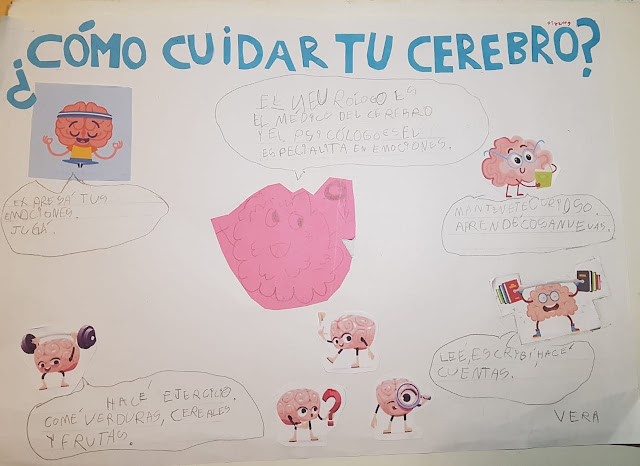 ¿CÓMO CUIDAR TU CEREBRO?
EL NEURÓLOGO ES
EL MEDICO DEL CEREBRO
Y EL PSICÓLOGO ES EL
ESPECIALITA EN EMOCIONES.
EXPRESÁ TUS
EMOCIONES.
JUGÁ.
MANTENETE CURIOSO.
APRENDÉ COSAS NUEVAS.
LEÉ, ESCRIBÍ, HACÉ
CUENTAS.
HACÉ EJERCICIO.
COMÉ VERDURAS, CEREALES
Y FRUTAS.
VERA